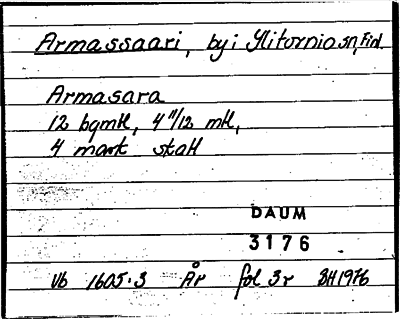 Armassaari, by i Ylitornio sn, Finl
Armasara
12 bqmtl, 4 11/12 mtl,
4 mark skatt
DAUM
3176
Vb 1605:3 År fol 3r BH1976